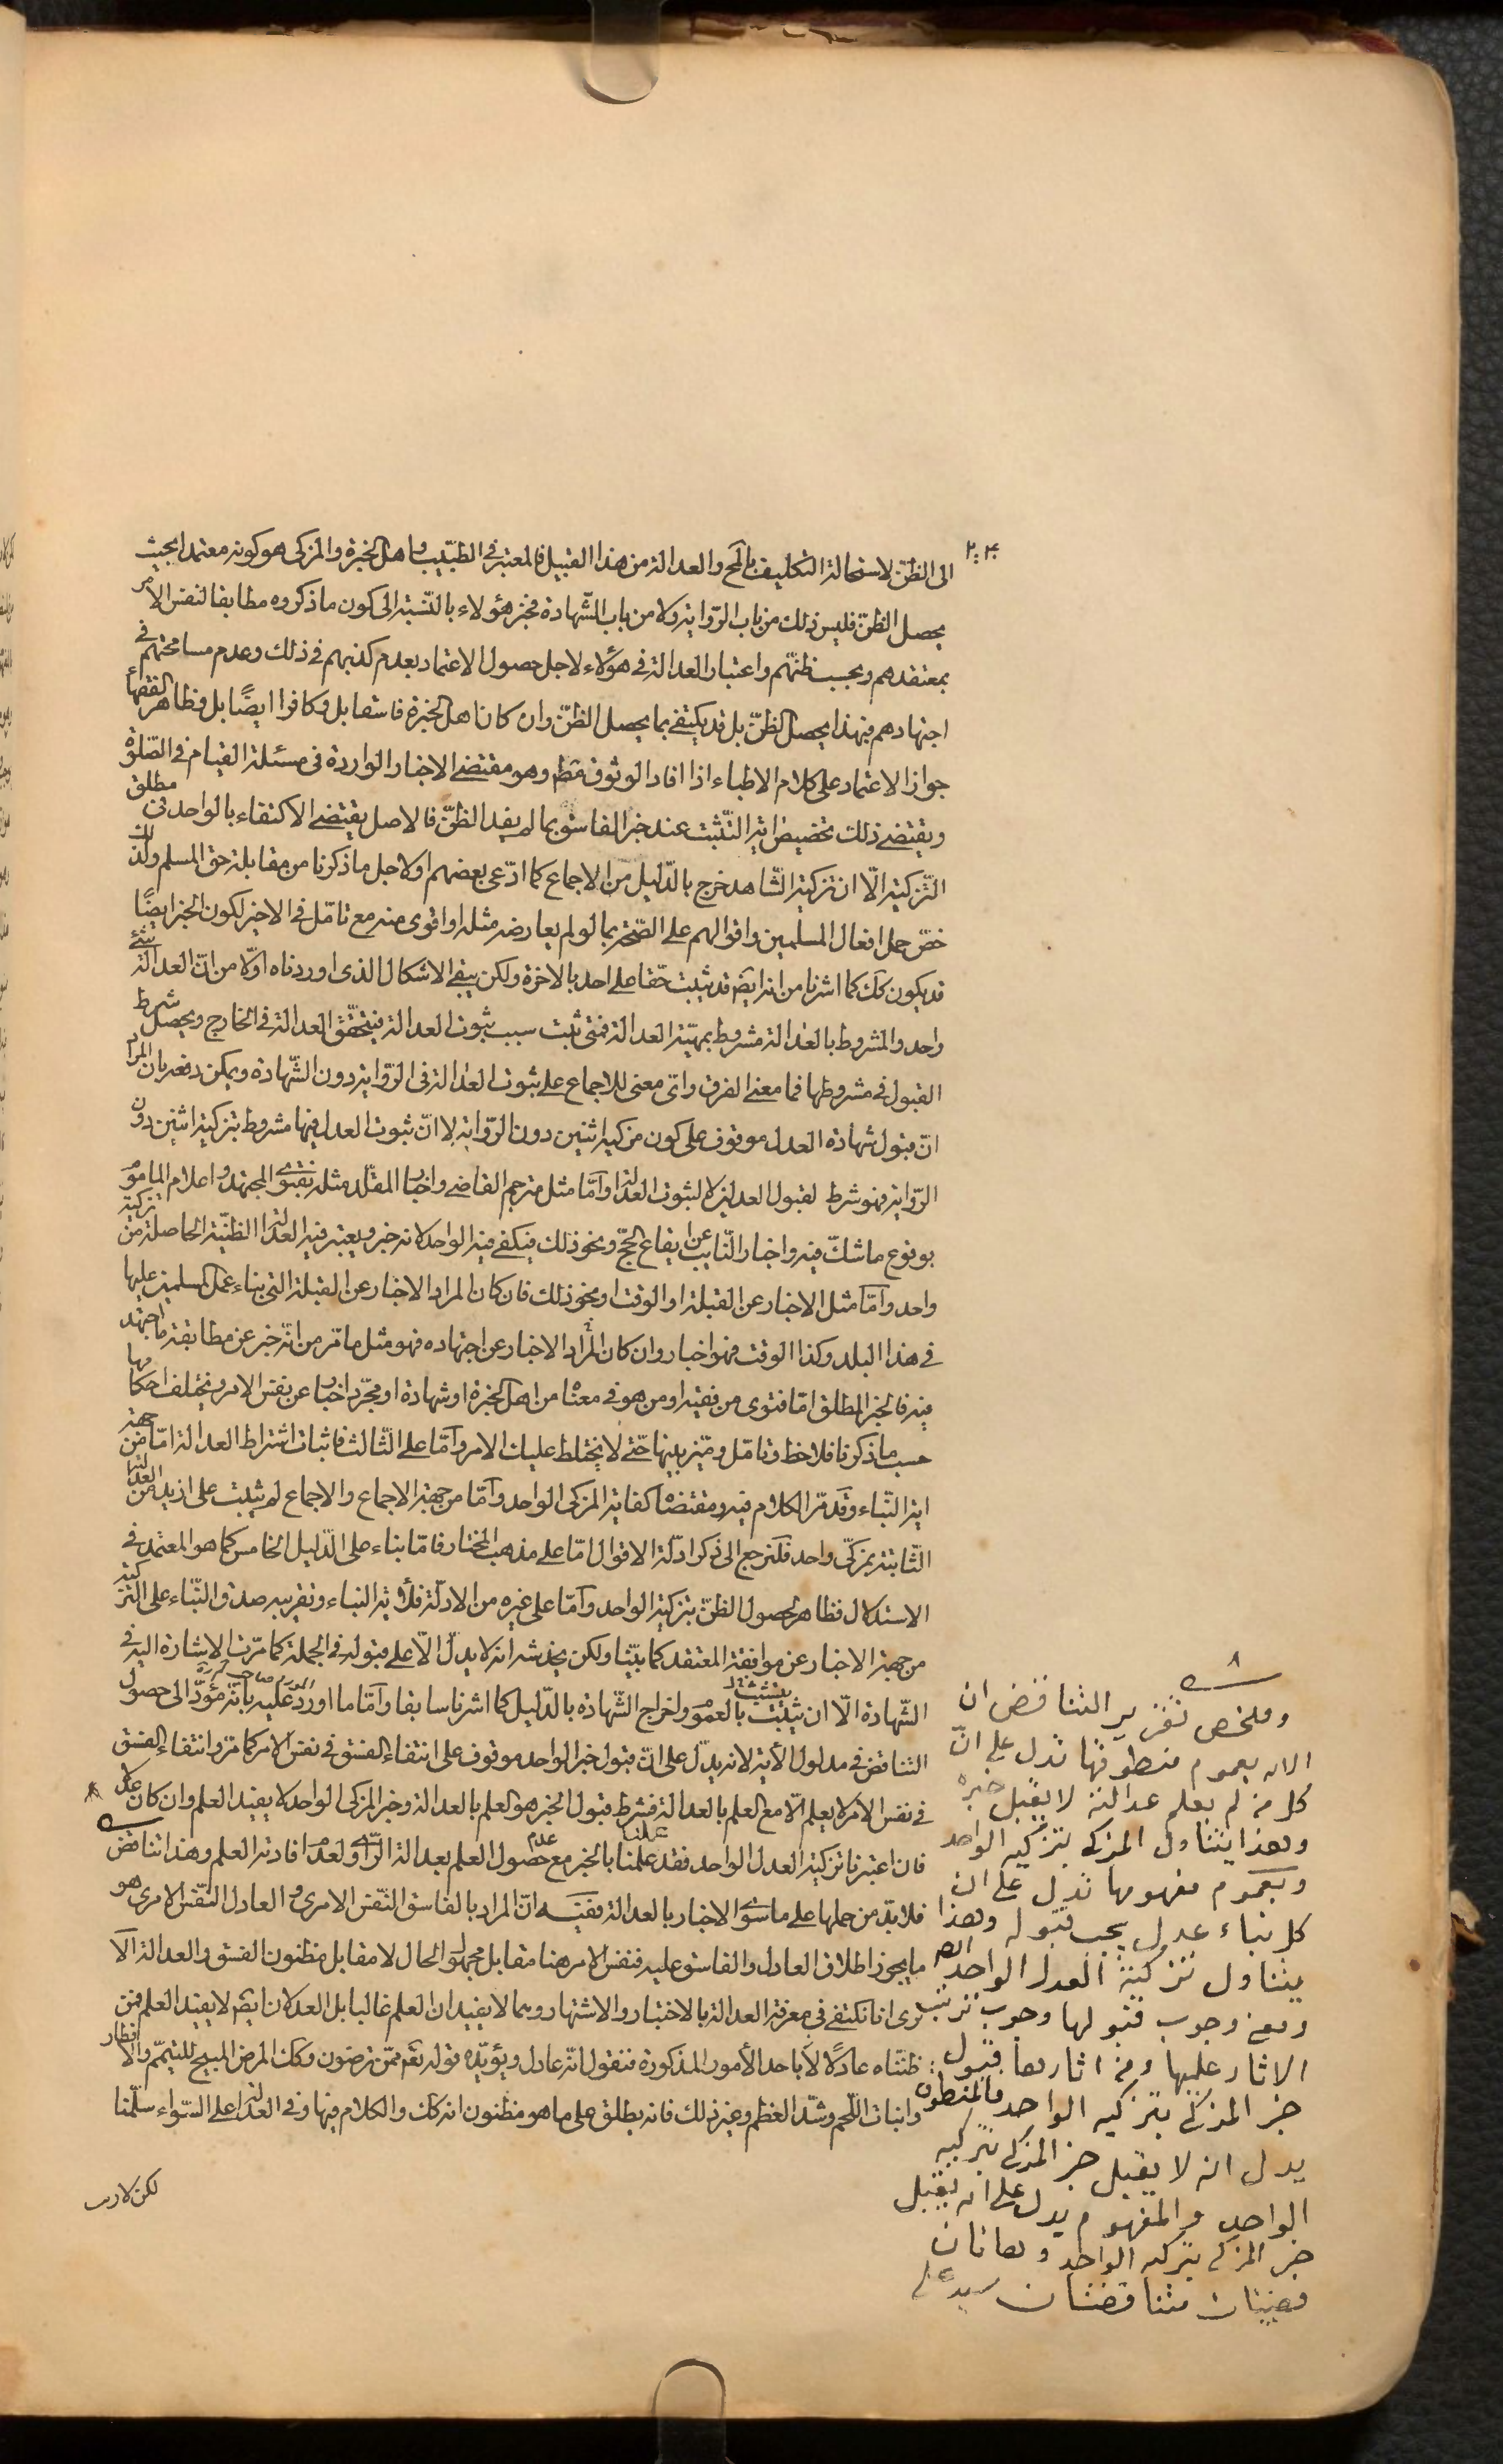 الى الظنّ لاستحالة التكليف بالمح والعدالة من هذا القبيل فالمعتبر فى الطبيب واهل الخبرة والمزكى هو كونه معتمدا بحيث
يحصل الظنّ فليس ذلك من باب الرّواية ولا من باب الشّهادة فخبر هؤلاء بالنّسبة الى كون ما ذكروه مطابقا لنفس الامر
بمعتقدهم وبحسب ظنّهم واعتبار العدالة فى هؤلاء لاجل حصول الاعتماد بعدم كذبهم فى ذلك وعدم مسامحتهم فى
اجتهادهم فبهذا يحصل الظنّ بل قد يكتفى بما يحصل الظنّ وان كان اهل الخبرة فاسقا بل وكافرا ايضًا بل وظاهر الفقهاء
جواز الاعتماد على كلام الاطباء اذا افاد الوثوق مط وهو مقتضى الاخبار الواردة فى مسئلة القيام فى الصّلوة
ويقتضى ذلك تخصيص اية التّثبت عند خبر الفاسق بما لم يفد الظنّ فالاصل يقتضى الاكتفاء بالواحد فى مطلق
التّزكية الّا ان تزكية الشّاهد خرج بالدّليل من الاجماع كما ادّعى بعضهم او لاجل ما ذكرنا من مقابلة حق المسلم ولذلك
خصّ حمل افعال المسلمين واقوالهم على الصّحّة بما لو لم يعارضه مثله او اقوى منه مع تامّل فى الاخير لكون الخبر ايضًا
قد يكون كك كما اشرنا من انه ايضا قد يثبت حقّا على احد بالاخرة ولكن يبقى الاشكال الذى اوردناه اوّلا من انّ العدالة شئ
واحد والمشروط بالعدالة مشروط بمهيّة العدالة فمتى ثبت سبب ثبوت العدالة فيتحقّق العدالة فى الخارج ويحصل شرط
القبول فى مشروطها فما معنى الفرق واىّ معنى للاجماع على ثبوت العدالة فى الرّواية دون الشّهادة ويمكن دفعه بان المراد
انّ قبول شهادة العدل موقوف على كون مزكيه اثنين دون الرّواية لا انّ ثبوت العدل فيها مشروط بتزكية اثنين دون
الرّواية فهو شرط لقبول العدلين لا لثبوت العدالة وامّا مثل مترجم القاضى واخبار المقلّد مثله بفتوى المجتهد واعلام الماموم
بوقوع ما شكّ فيه واخبار النّايب عن ايقاع الحجّ ونحو ذلك فيكفى فيه الواحد لانه خبر ويعتبر فيه العدالة الظنّية الحاصلة من تزكية
واحد وامّا مثل الاخبار عن القبلة او الوقت او نحو ذلك فان كان المراد الاخبار عن القبلة التى بناء عمل المسلمين عليها
فى هذا البلد وكذا الوقت فهو اخبار وان كان المراد الاخبار عن اجتهاده فهو مثل ما مّر من انّه خبر عن مطابقة ما اجتهد
فيه فالخبر المطلق امّا فتوى من فقيه او من هو فى معناه من اهل الخبرة او شهادة او مجّرد اخبار عن نفس الامر ويختلف احكامها
حسب ما ذكرنا فلاحظ وتامّل وميّز بينها حتّى لا يختلط عليك الامر وامّا على الثّالث فاثبات اشتراط العدالة امّا من جهة
اية النّباء وقد مّر الكلام فيه ومقتضاه كفاية المزكى الواحد وامّا من جهة الاجماع والاجماع لم يثبت على ازيد من العدالة
الثّابتة بمزكّى واحد فلنرجع الى ذكر ادلّة الاقوال امّا على مذهب المختار فامّا بناء على الدّليل الخامس كما هو المعتمد فى
الاستدلال فظاهر لحصول الظنّ بتزكية الواحد وامّا على غيره من الادلّة فلاية النباء وتقريبه صدق النّباء على التزكية
من جهة الاخبار عن موافقة المعتقد كما بيّنا ولكن يخدشه انه لا يدلّ الّا على قبوله فى الجملة كما مرّت الاشارة اليه فى
الشّهادة الّا ان يثبت بالعموم واخراج الشّهادة بالدّليل كما اشرنا سابقا وامّا ما اورد عليه بانّه مؤدّ الى حصول
التناقض فى مدلول الأية لانه يدّل على انّ قبول خبر الواحد موقوف على انتفاء الفسق فى نفس الامر كما مرّ وانتفاء الفسق
فى نفس الامر لا يعلم الّا مع العلم بالعدالة فشرط قبول الخبر هو العلم بالعدالة وخبر المزكى الواحد لا يفيد العلم وان كان عدلا
فان اعتبرنا تزكية العدل الواحد فقد علمنا بالخبر مع عدم حصول العلم بعدالة الرّاوى لعدم افادته العلم وهذا تناقض
فلا بدّ من حملها على ما سوى الاخبار بالعدالة ففيه انّ المراد بالفاسق النّفس الامرى والعادل النّفس الامرى هو
ما يجوز اطلاق العادل والفاسق عليه فنفس الامر هنا مقابل مجهول الحال لا مقابل مظنون الفسق والعدالة الا
ترى انا نكتفى فى معرفة العدالة بالاختبار والاشتهار وهما لا يفيدان العلم غالبا بل العدلان ايضا لا يفيد العلم فمن
ظنناه عادلا لاباحد الأمور المذكورة فنقول انّه عادل ويؤيّده قوله تعم ممّن ترضون وكك المرض المبيح للتيمّم والافطار
وانبات اللّحم وشدّ العظم وغير ذلك فانه يطلق على ما هو مظنون انه كك والكلام فيها وفى العدالة على السّواء سلّمنا
لكن لا ريب
وملخص تقرير التناقض ان
الايه بعموم منطوقها تدل على انّ
كل من لم يعلم عدالته لا يقبل خبره
وهذا يتناول المزكى بتزكيه الواحد
وبعموم مفهومها تدل على ان
كل نباء عدل يجب قبوله وهذا
يتناول تزكية العدل الواحد ايضا
ومعنى وجوب قبولها وجوب ترتب
الاثار عليها ومن اثارها قبول
خبر المزكى بتزكيه الواحد فالمنطوق
يدل انه لا يقبل خبر المزكى بتزكيه
الواحد والمفهوم يدل على انه يقبل
خبر المزكى بتزكيه الواحد وهاتان
قضيتان متناقضتان سيد على